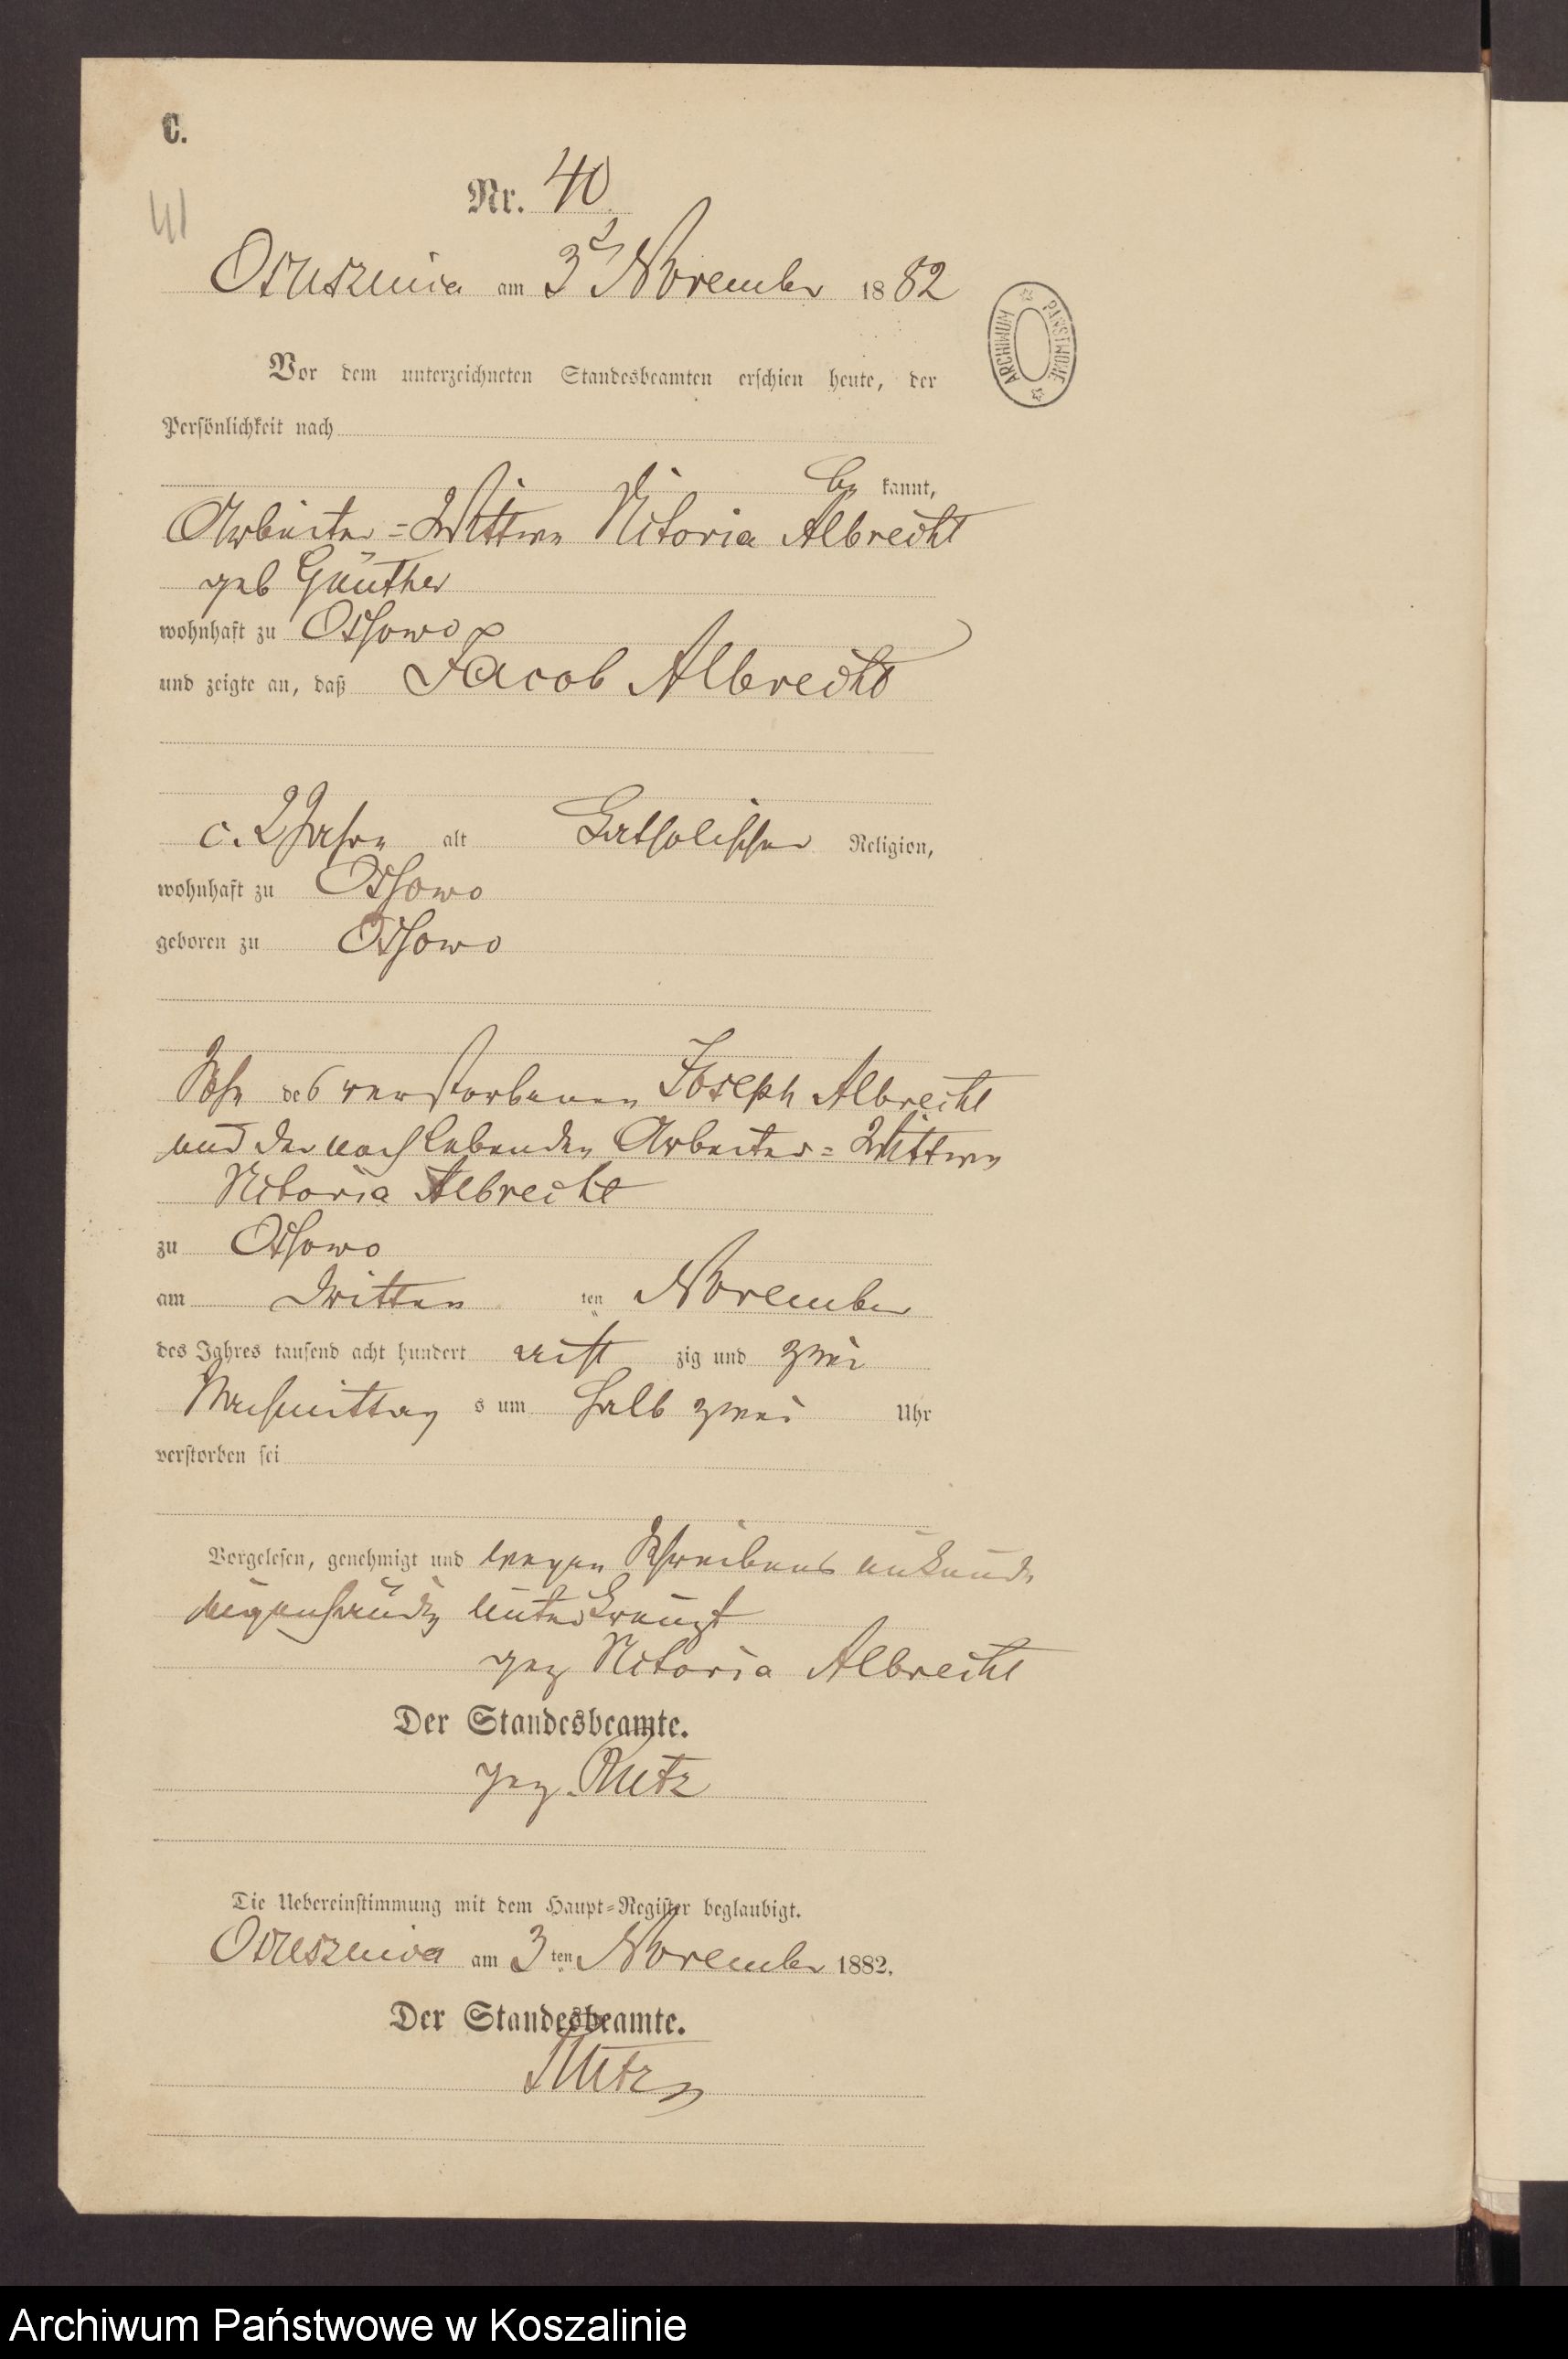 C.
41
Nr. 40
Osuszenica am 3t November 1882
ARCHIWUM PAŃSTWOWE
Vor dem unterzeichneten Standesbeamten erschien heute, der
Persönlichkeit nach
be kannt,
Arbeiter-Wittwe Vitoria Albrecht
geb Günther
wohnhaft zu Ossowo
und zeigte an, daß Jacob Albrecht
c. 2 Jahre alt Katholischer Religion,
wohnhaft zu Ossowo
geboren zu Ossowo
Sohn des verstorbenen Joseph Albrecht
und der noch lebenden Arbeiter-Wittwe
Vitoria Albrecht
zu Ossowo
am dritten ten November
des Jahres tausend acht hundert acht zig und zwei
Nachmittag s um halb zwei Uhr
verstorben sei
Vorgelesen, genehmigt und wegen Schreibens unkund
eigenhändig unterkreuzt
gez Vitoria Albrecht
Der Standesbeamte.
gez. Rutz
Die Uebereinstimmung mit dem Haupt-Register beglaubigt.
Osuszenica am 3ten November 1882.
Der Standesbeamte.
Rutz
Archiwum Państwowe w Koszalinie